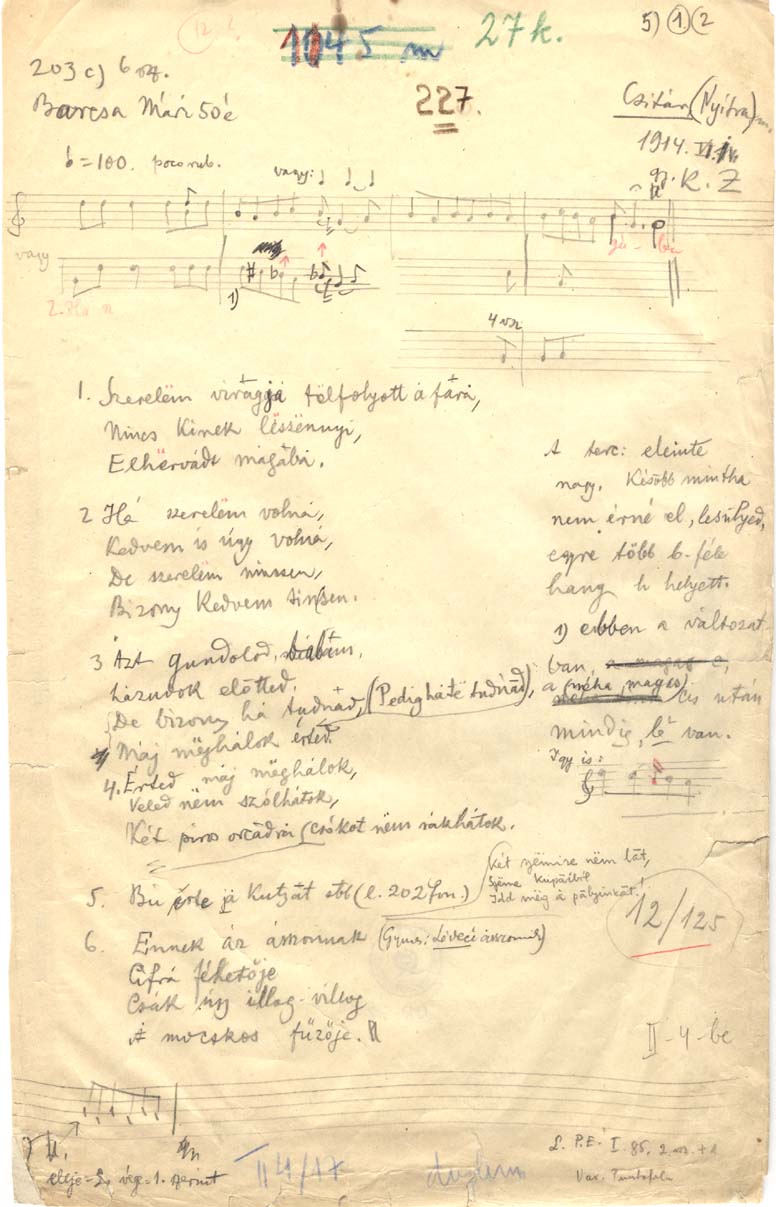 12 ?
1045 m
27 k.
5) 1 (2
203 c) 6 sz.
Barcsa Mári 50é
227.
Csitár, (Nyitra) m.
1914. VI.
gy. K. Z
= 100. poco rub.
vagy:
vagy
zú - ba
2. Ha
1)
4 vsz
1. Szerelëm virágjá tëlfolyott á fárá,
Nincs kinek lëszënnyi,
Elhërvádt mágábá.
2 Há szerelëm volná,
Kedvem is úgy volná,
De szerelëm nincsen,
Bizony kedvem sincsen.
3 Ázt gundolod,
házudok előtted,
De bizony há tudnád, (Pedig há të tudnád),
Máj mëghálok érted.
4. Érted máj mëghálok,
Veled nëm szólhátok,
Két piros orcádrá csókot nëm rákhátok.
5. Bú ërte já kutyát stb (l. 202 fon.)
Két szëmire nëm lát,
Idd mëg á pályinkát!
6. Ennek áz ásszonnak (Gymes: Lëveci ásszonnak)
Cifrá féhetője
Csák úgy illog-villog
Á mocskos fűzője.
A terc: eleinte
nagy. Később mintha
nem érné el, lesülyed,
egyre több b-féle
hang h helyett.
1) ebben a változat-
ban, a (néha magas) cis után
mindig b van.
Így is:
12/125
II-4-be
eleje-2, vég-1. szerint
II 4/17
L. P.E. I. 85, 2 sz. + 1
Var.